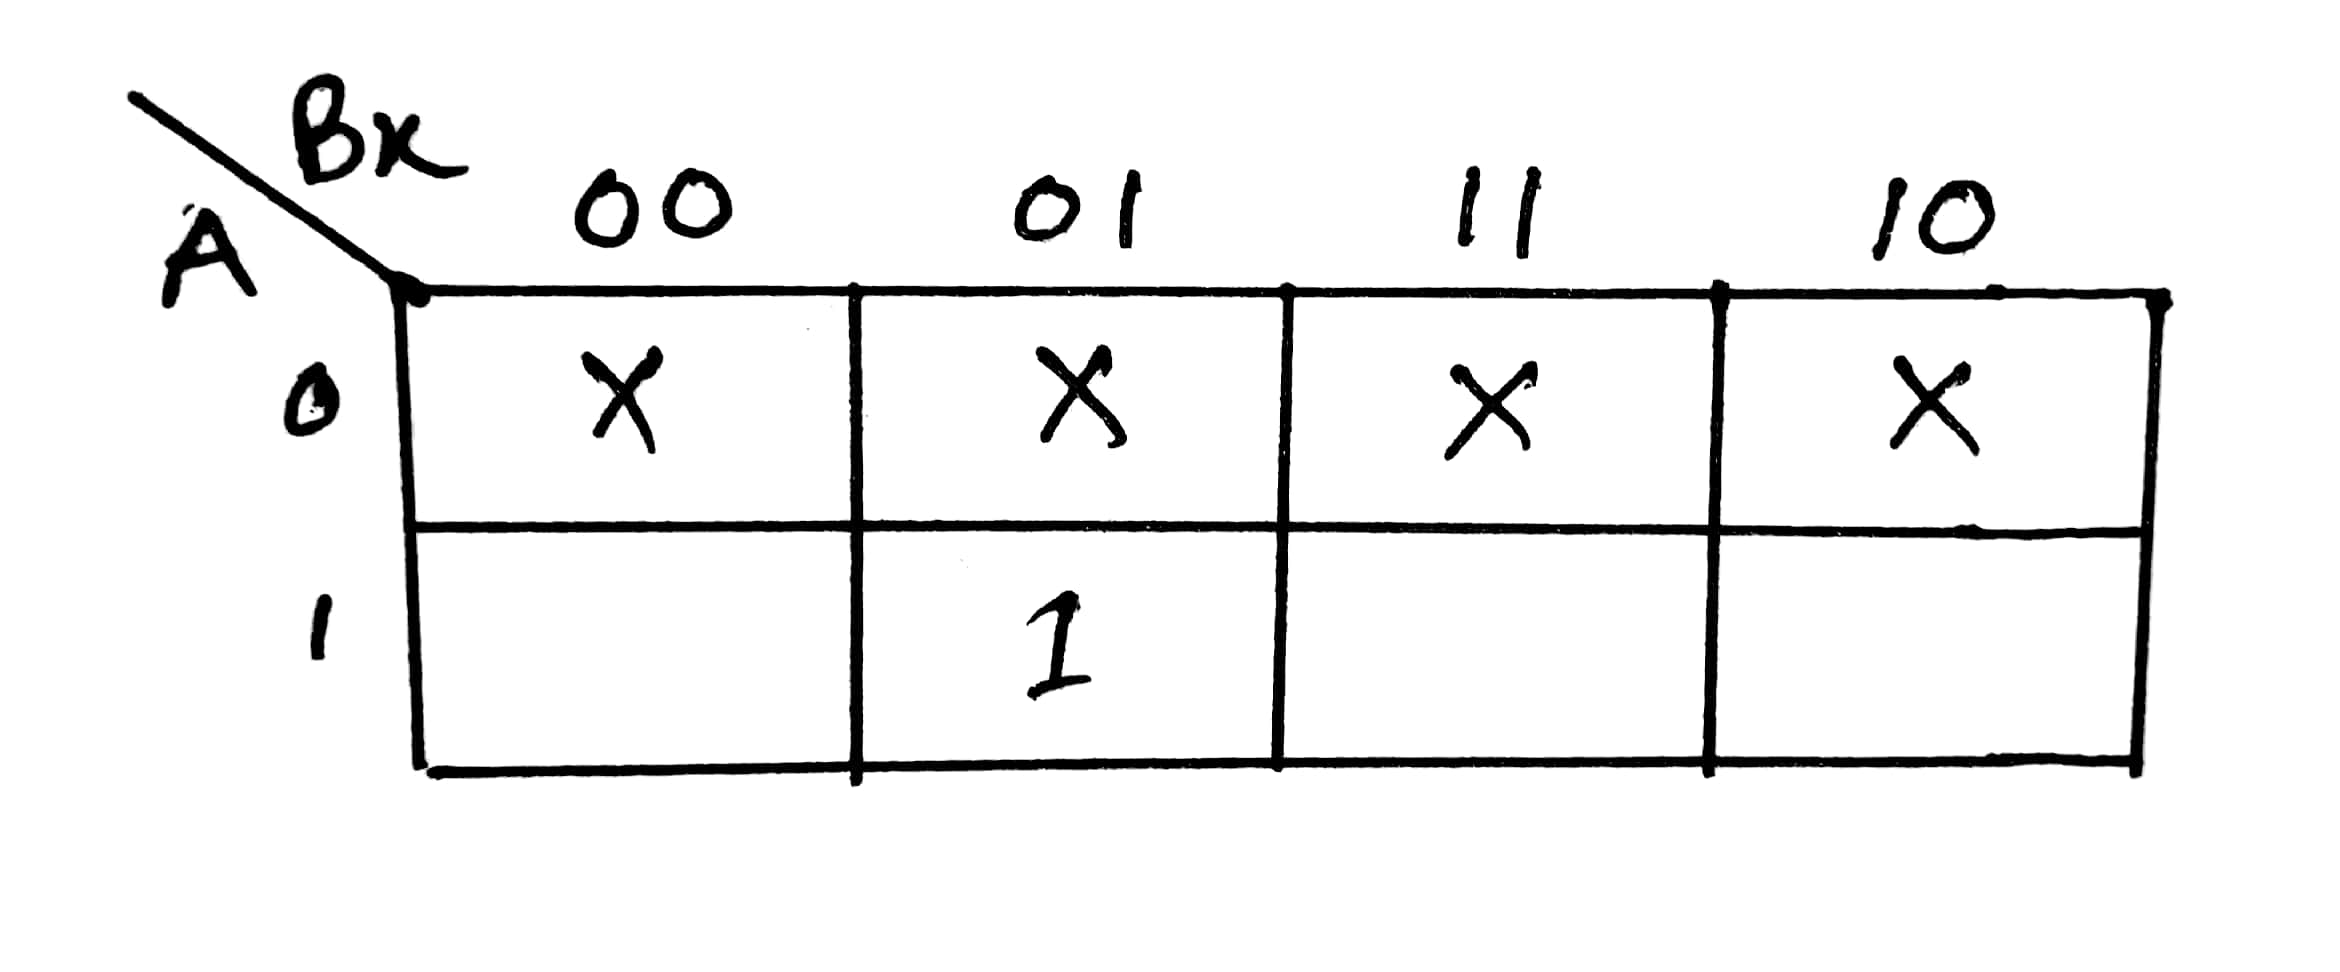 Bx
A 00 01 11 10
0 X X X X
1 1